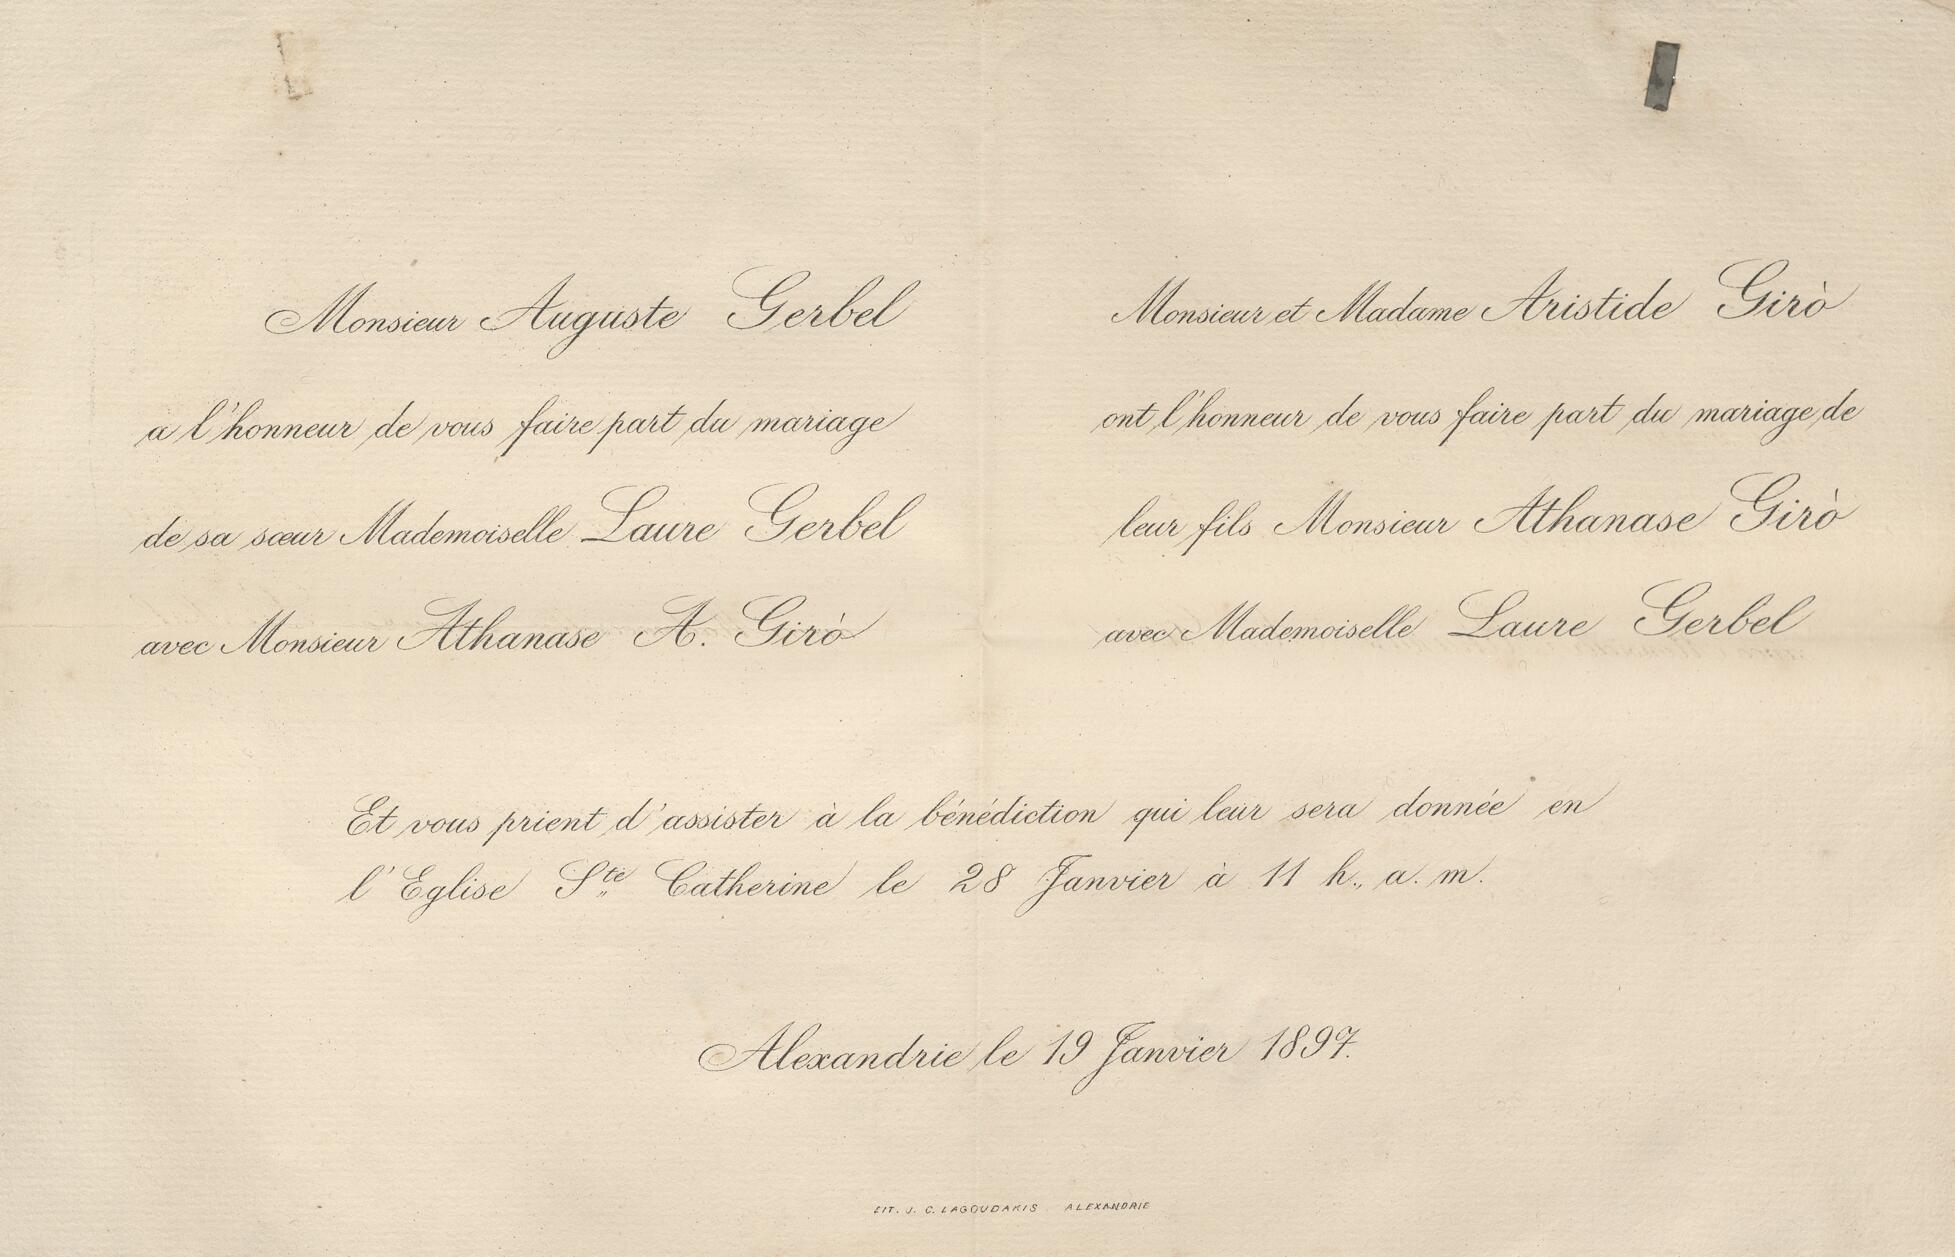 Monsieur Auguste Gerbel
a l'honneur de vous faire part du mariage
de sa sœur Mademoiselle Laure Gerbel
avec Monsieur Athanase A. Girò
Monsieur et Madame Aristide Girò
ont l'honneur de vous faire part du mariage de
leur fils Monsieur Athanase Girò
avec Mademoiselle Laure Gerbel
Et vous prient d'assister à la bénédiction qui leur sera donnée en
l'Eglise Ste Catherine le 28 Janvier à 11 h., a. m.
Alexandrie le 19 Janvier 1897.
LIT. J. C. LAGOUDAKIS ALEXANDRIE